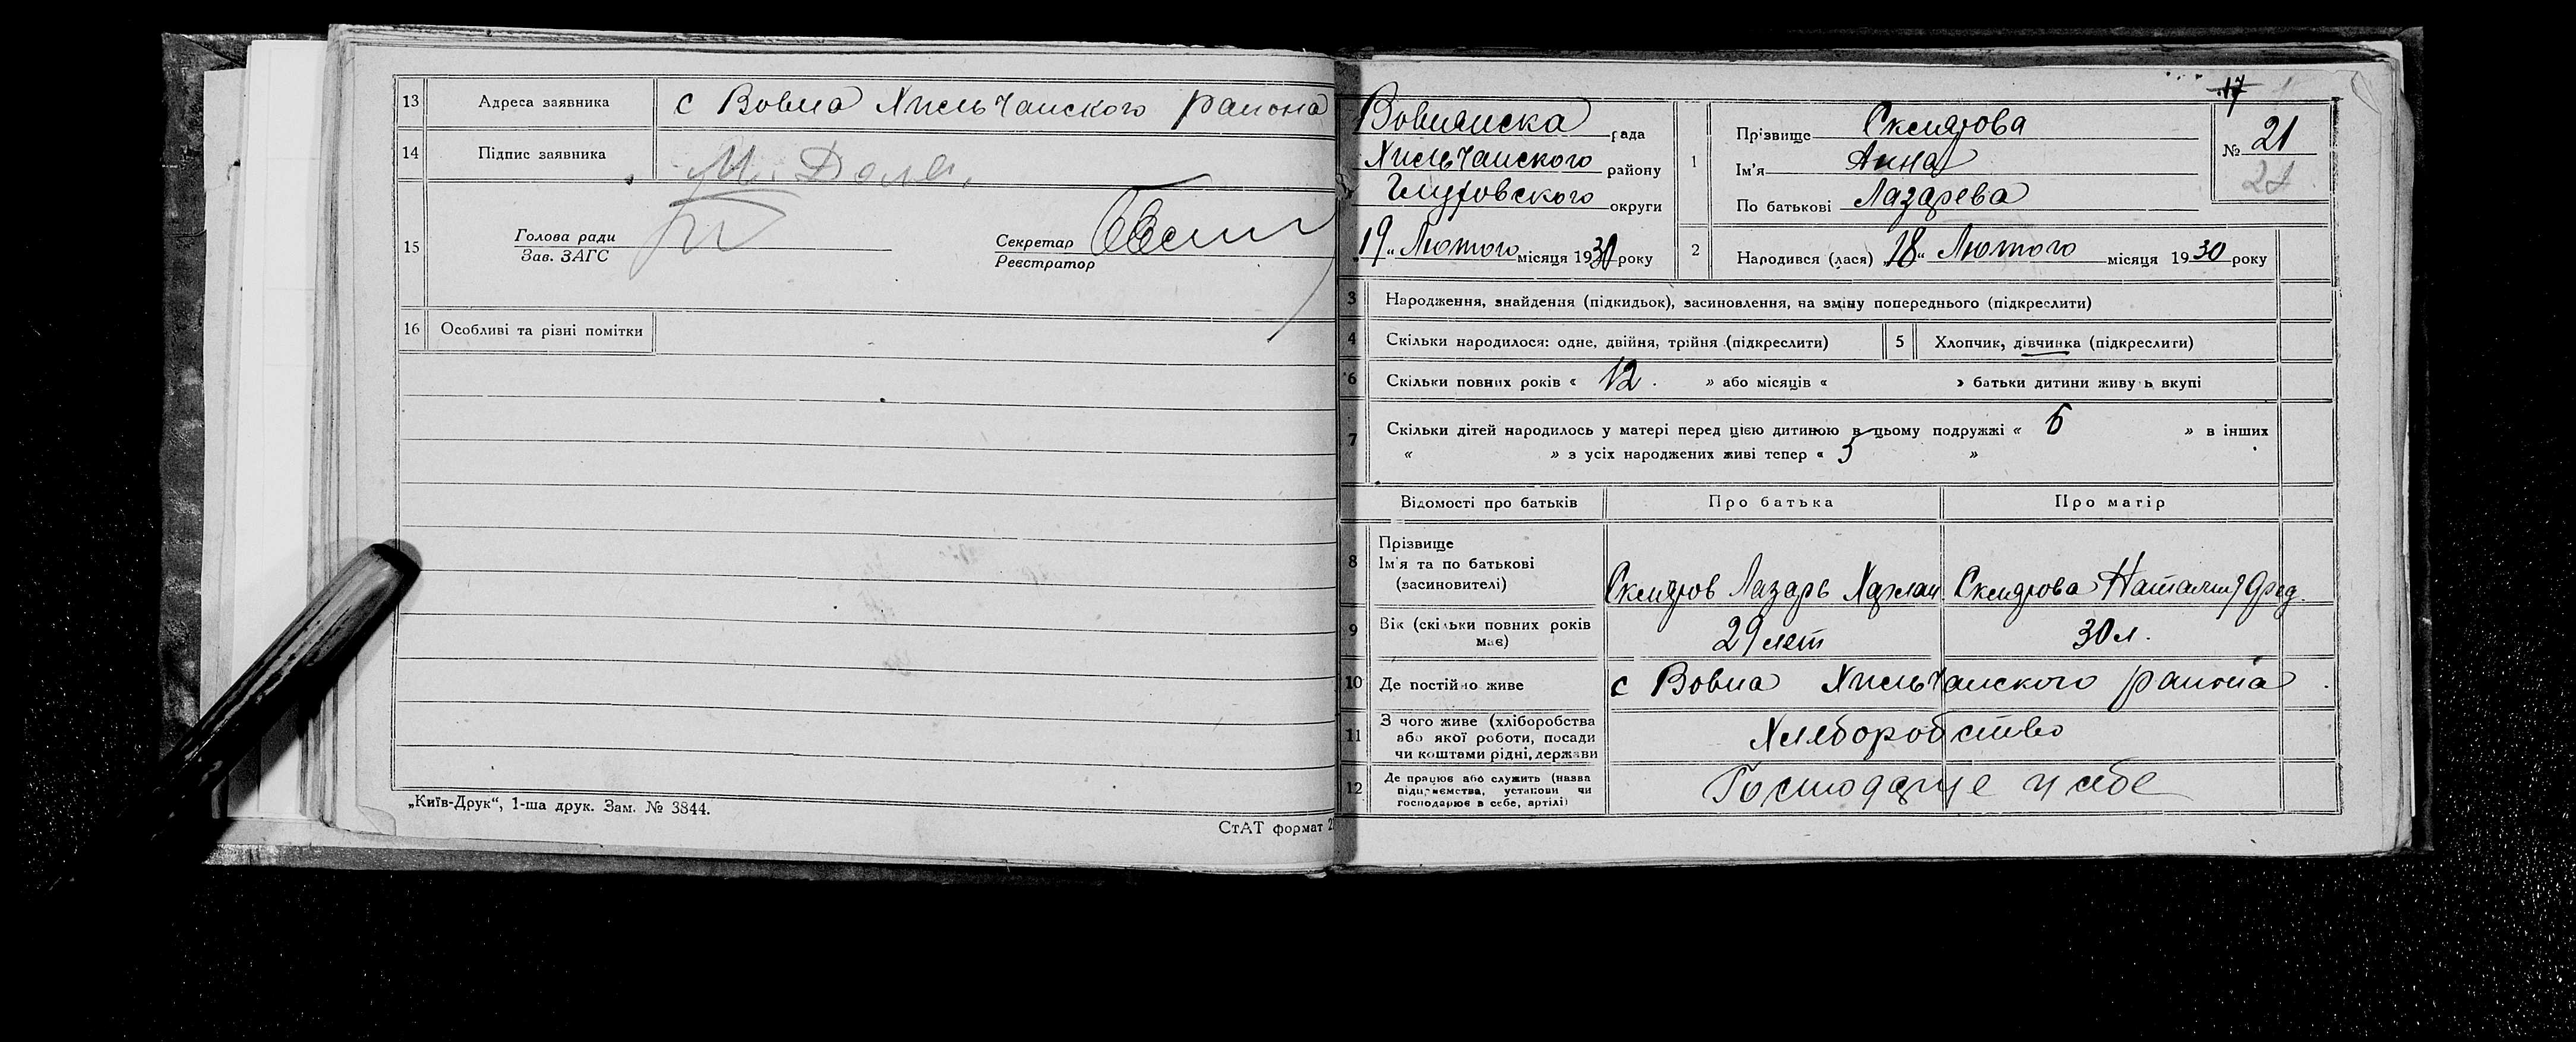 13 Адреса заявника с Вовна Хильчанского района
14 Підпис заявника М. Доля
15 Голова ради
Зав. ЗАГС
Секретар
Реєстратор
16 Особливі та різні помітки
„Київ-Друк“, 1-ша друк. Зам. № 3844.
СтАТ формат
17
Вовнянска рада
Хильчанского району
Глуховского округи
19 „ Лютого місяця 1930 року
1 Прізвище Склярова
Ім'я Анна
По батькові Лазарева
№ 21
21
2 Народився (лася) „18“ Лютого місяця 1930 року
3 Народження, знайдення (підкидьок), засиновлення, на зміну попереднього (підкреслити)
4 Скільки народилося: одне, двійня, трійня (підкреслити) 5 Хлопчик, дівчинка (підкреслити)
6 Скільки повних років « 12 . » або місяців « » батьки дитини живуть вкупі
7 Скільки дітей народилось у матері перед цією дитиною в цьому подружжі « 6 » в інших
« » з усіх народжених живі тепер « 5 »
Відомості про батьків Про батька Про матір
8 Прізвище
Ім'я та по батькові
(засиновителі)
Скляров Лазарь Склярова Наталия Фед.
9 Вік (скільки повних років має) 29 лет 30 л.
10 Де постійно живе с Вовна Хильчанского района
11 З чого живе (хліборобства
або якої роботи, посади
чи коштами рідні, держави
Хлеборобство
12 Де працює або служить (назва
підприємства, установи чи
господарює в себе, артілі)
Господарує у себе